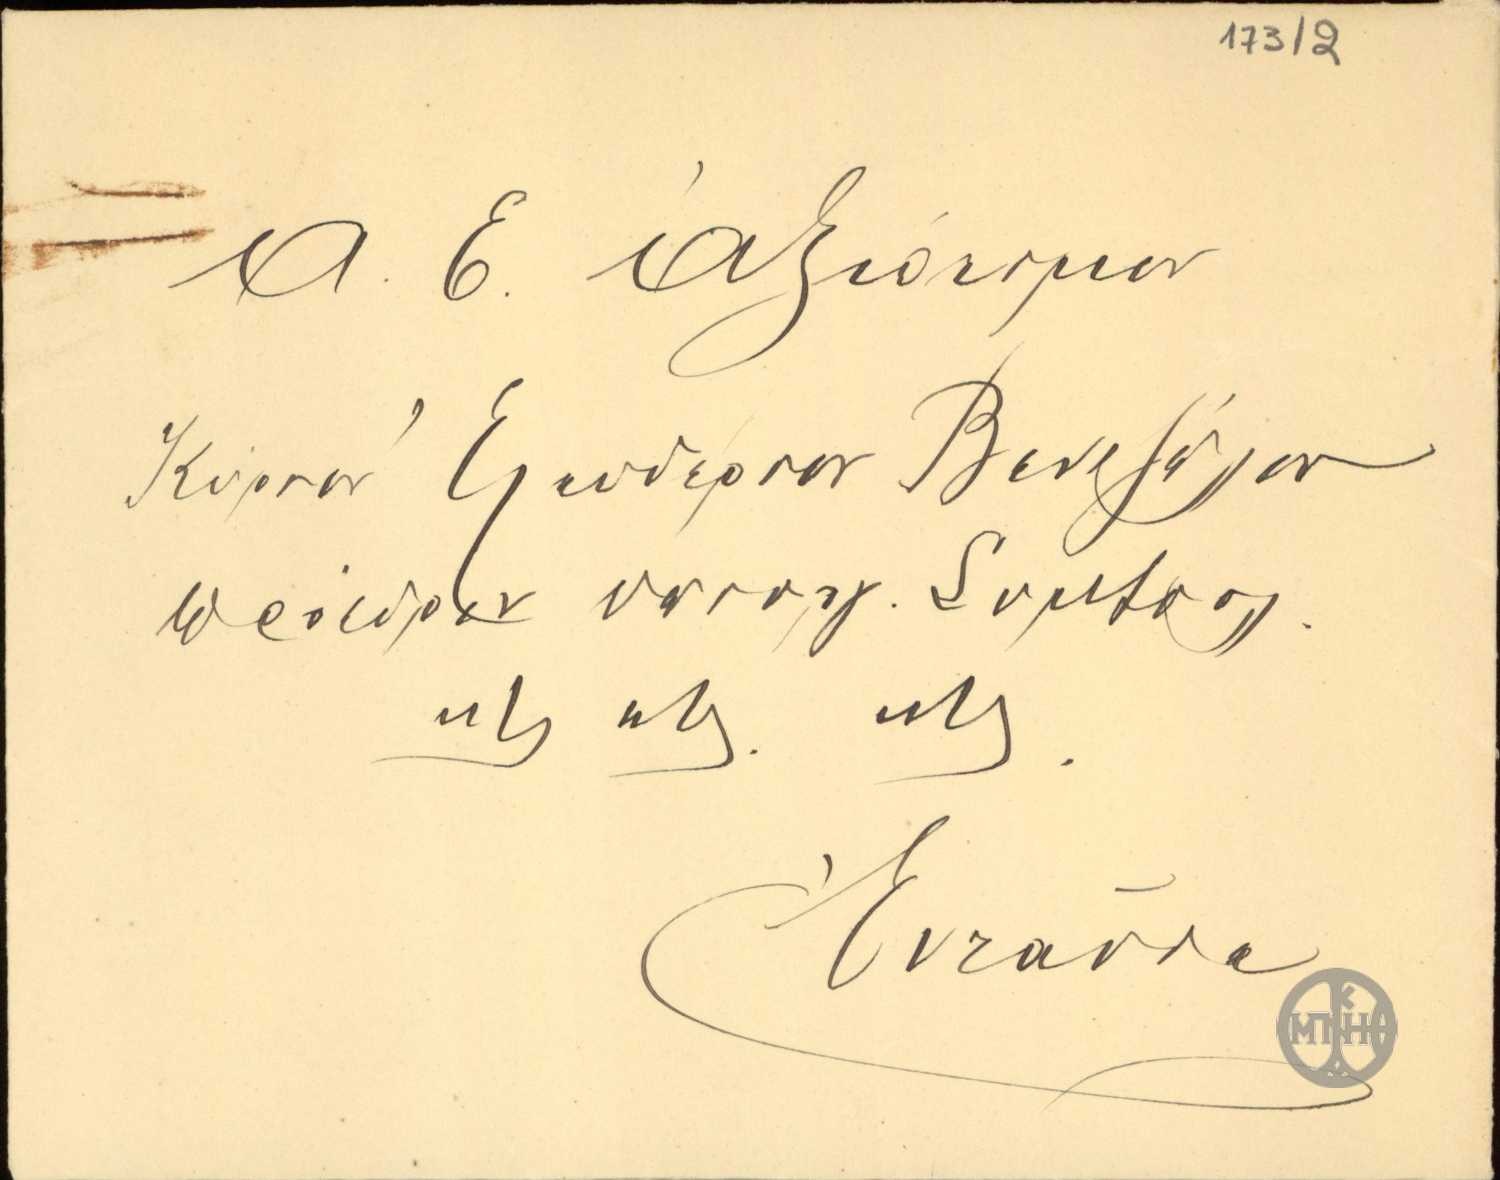 173/2
Α. Ε. Ἀξιότιμον
Κύριον Ἐλευθέριον Βενιζέλον
Πρόεδρον ὑπουργ. Συμβουλ.
κτλ κτλ. κτλ.
Ἐνταῦθα